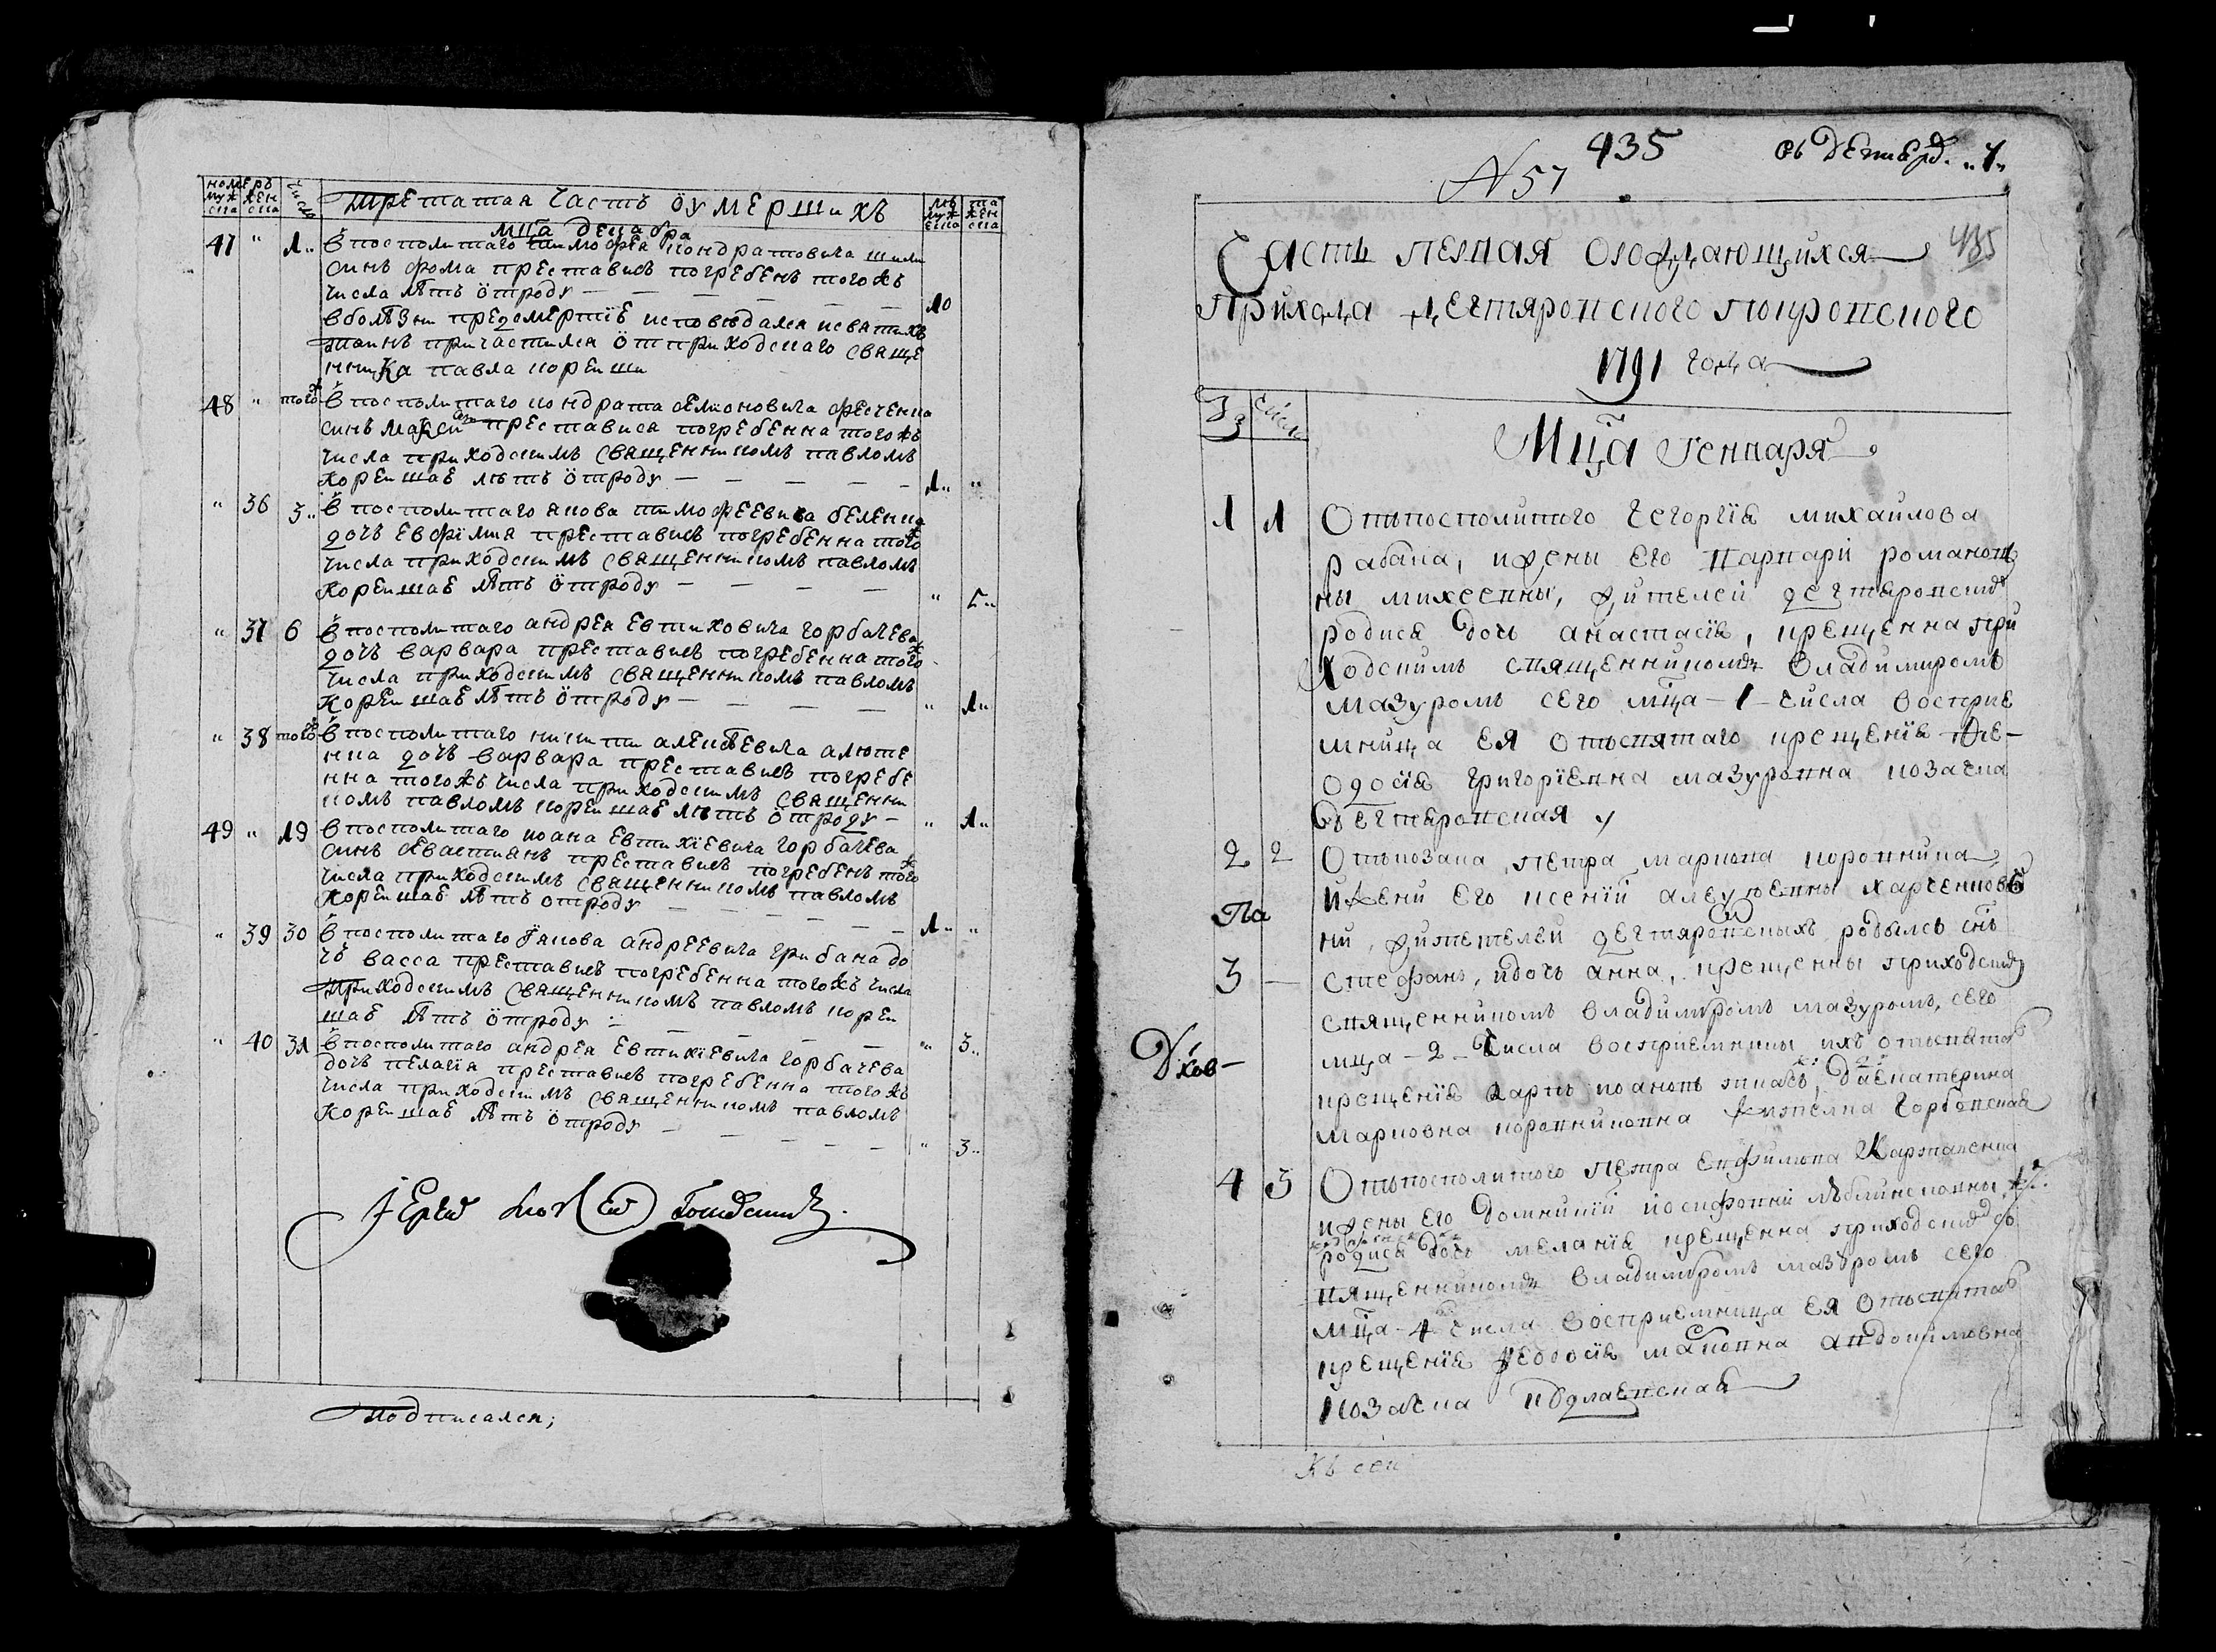 номеръ
муж жен числа
ска ска
третатая часть о умершихъ
мца декабра
лѣ та
муж жен
ска ска
47 " 1.. В посполитаго тимофея кондратовича шили
синъ фома преставися погребенъ тогожъ
числа лѣтъ отроду — — — — — 10
в болѣзни предсмертіе исповѣдался и святихъ
таинъ причастился от приходскаго свяще
нника павла корейши
48 " тогож В посполитаго кондрата семіоновича фесченка
синъ максим преставися погребенна тогожъ
числа приходскимъ священникомъ павломъ
корейшаѣ лѣтъ отроду — — — — — 1.. "
" 36 3.. В посполитаго якова тимофеевича беленка
дочъ евфімия преставися погребенна того ж
числа приходскимъ священникомъ павломъ
корейшаѣ лѣтъ отроду — — — — " 5..
" 37 6 В посполитаго андрея евтиховича горбачева
дочъ варвара преставися погребенна того ж
числа приходскимъ священникомъ павломъ
корейшаѣ лѣтъ отроду — — — — " 1..
" 38 тогож В посполитаго никити алексѣевича алюте
нка дочъ варвара преставися погребе
нна тогожъ числа приходскимъ священни
комъ павломъ корейшаѣ лѣтъ отроду — " 1..
49 " 19 В посполитаго иоана евтихіевича горбачева
синъ севастиянъ преставися погребенъ того ж
числа приходскимъ священникомъ павломъ
корейшаѣ лѣтъ отроду — — — — — — 1.. "
" 39 30 В посполитаго якова андреевича грибана до
чъ васса преставися погребенна тогожъ числа
приходскимъ священникомъ павломъ корей
шаѣ лѣтъ отроду — — — — " 3..
" 40 31 В посполитаго андрея евтихіевича горбачева
дочъ пелагія преставися погребенна тогожъ
числа приходскимъ священникомъ павломъ
корейшаѣ лѣтъ отроду — — — — — " 3..
Іерей
подписался;
435
N 57
435
Часть первая о рождающихся
прихода дегтяровского покровского
1791 года
Чис
Мца Генваря
1 1 Отъ посполитого Георгія михаилова
рабана, и жены его варвари романов
ны михеевны, жителей дегтяровски
родися дочь анастасія, крещенна при
ходскимъ священникомъ владимиромъ
мазуромъ сего мца — 1 — числа восприе
мница ея отъ святаго крещенія Ѳе-
одосія григоріевна мазуровна козачка
дегтяровская
2 2 Отъ козака петра маркова коровника
и жени его ксенїи харченков
Па ни, жителей дегтяровскихъ родылся снъ
3 — стефанъ, и дочь анна, крещенны приходским
священникомъ владимиромъ мазуромъ, сего
Дхов— мца — 2 — числа восприемники ихъ отъ святаго
крещенія карпъ иоановъ да екатерина
марковна коровниковна
4 3 Отъ посполитого петра евфимова
и жены его домникїи йосифовни
родися дочь меланія крещенна приходским с
вященникомъ владимиромъ мазуромъ сего
мца — 4 числа восприемница ея отъ святаго
крещенія феодосія
козачка
Къ сей